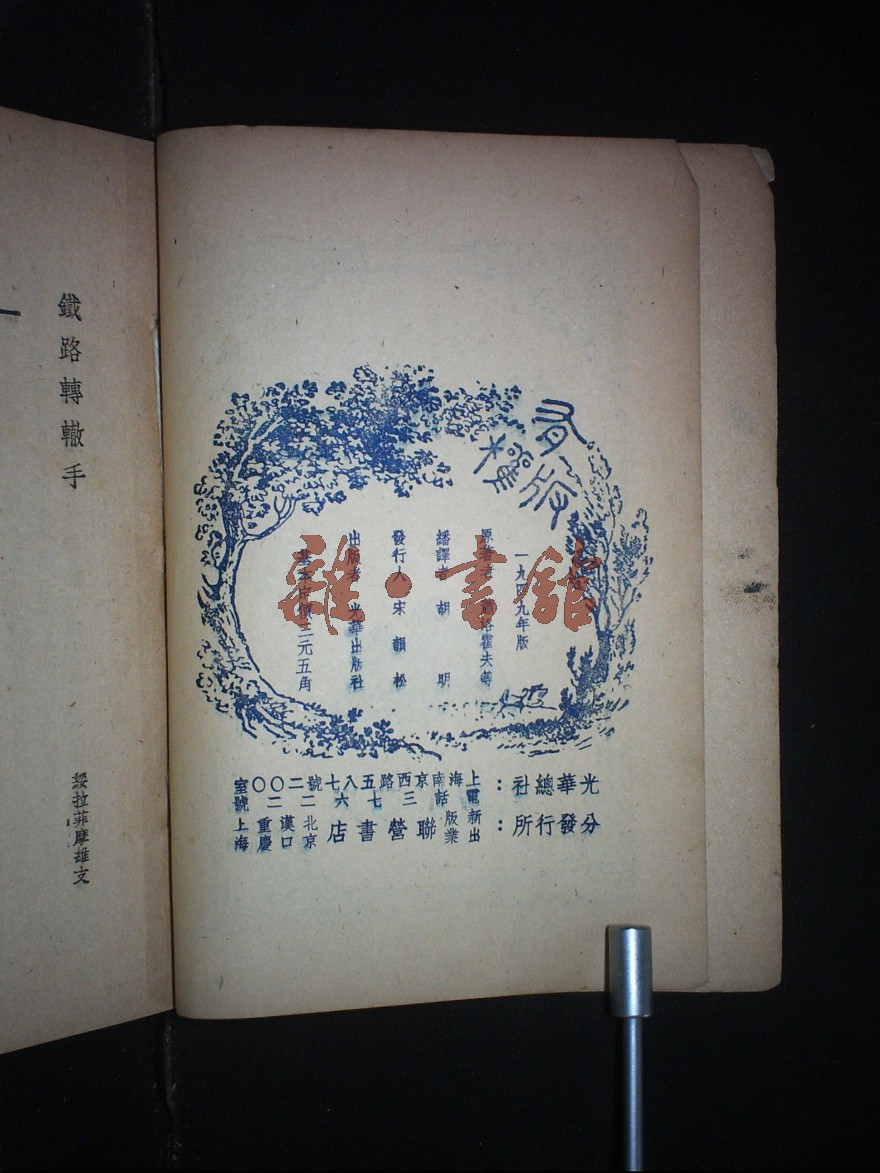 有版權
一九四九年版
原著者 蕭洛霍夫等
翻譯者 胡 明
發行人 宋 韻 松
出版者 光華出版社
基本定價三元五角
光華總社：上海南京西路五八七號二〇〇室
電話三七六二二號
分發行所：新出版業聯營書店 北京 漢口 重慶 上海
鐵路轉轍手
綏拉菲摩維支
一
雜·書館